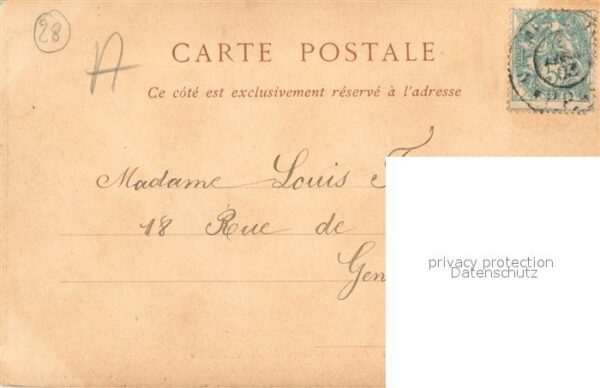 28
A
CARTE POSTALE
Ce côté est exclusivement réservé à l'adresse
Madame Louis
18 Rue de
privacy protection
Datenschutz